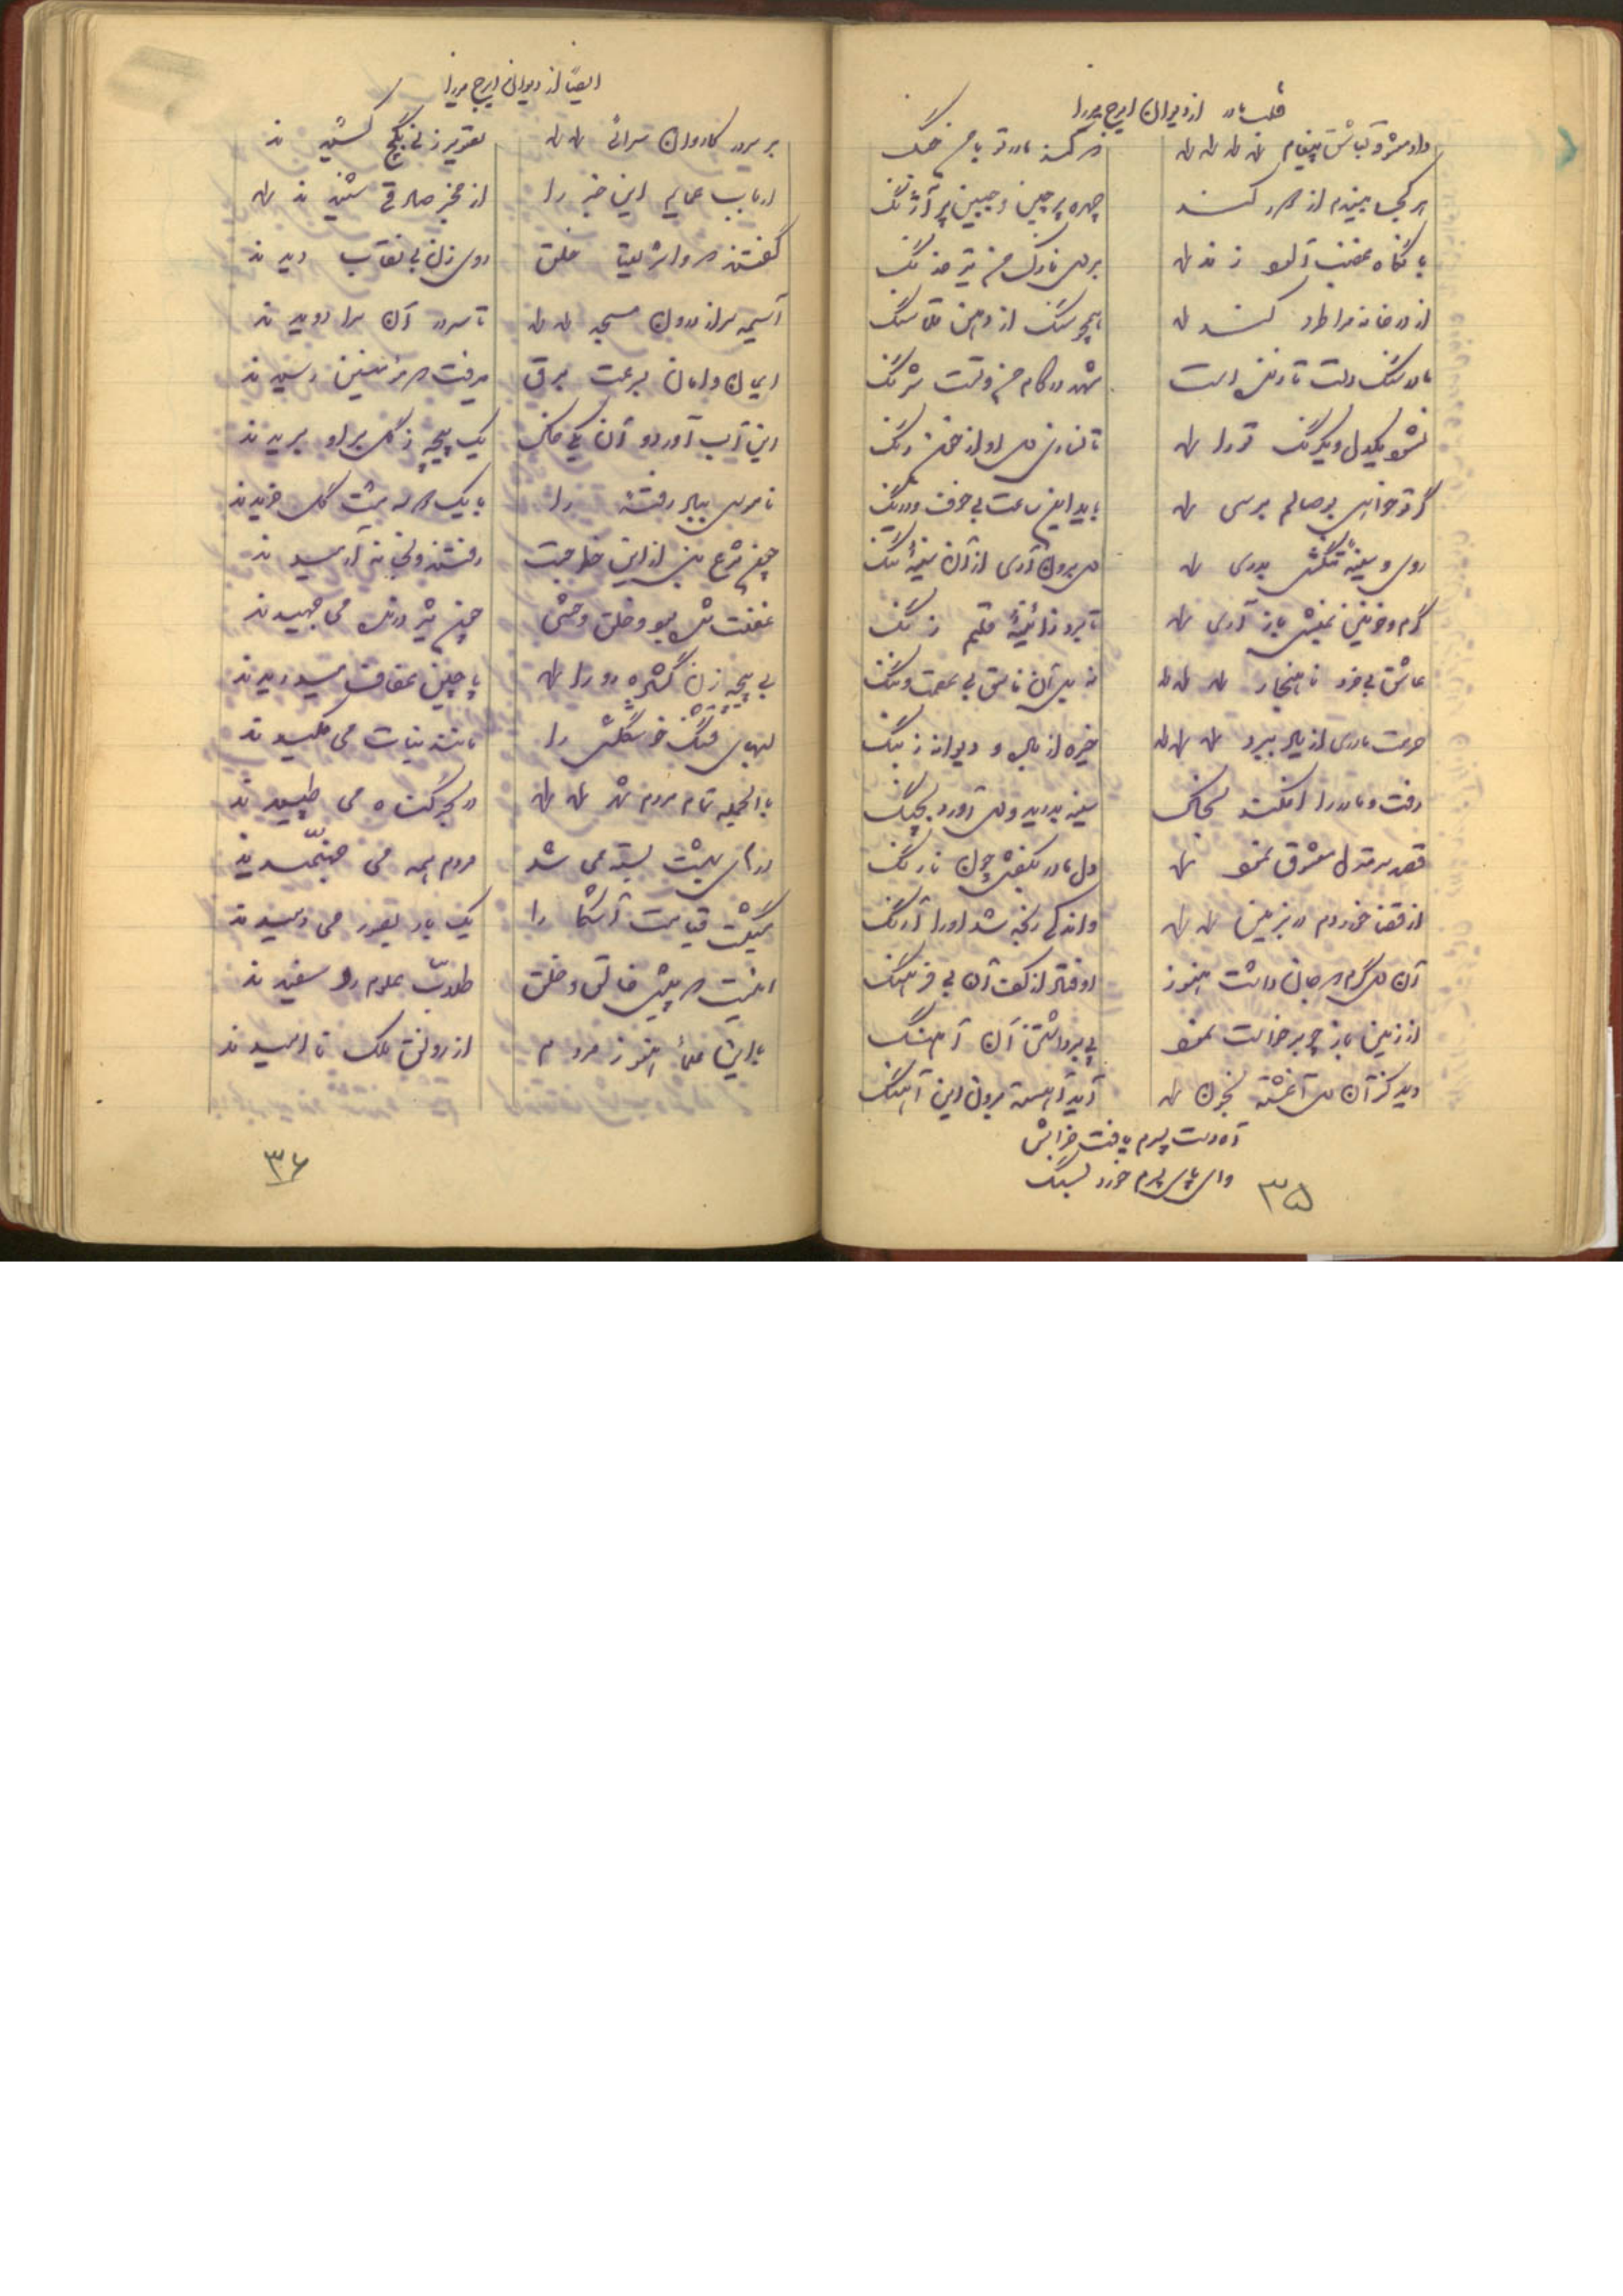 قلب مادر از دیوان ایرج میرزا
داد معشوقه بعاشق پیغام که کند مادر تو با من جنگ
هر کجا بیندم از دور کند چهره پر چین و جبین پر آژنگ
با نگاه غضب آلود زند بر دل نازک من تیر خدنگ
از در خانه مرا طرد کند همچو سنگ از دهن قلماسنگ
مادر سنگدلت تا زنده است شهد در کام من و تست شرنگ
نشوم یکدل و یکرنگ ترا تا نسازی دل او از خون رنگ
گر تو خواهی بوصالم برسی باید این ساعت بی خوف و درنگ
روی و سینه تنگش بدری دل برون آری از آن سینهٔ تنگ
گرم و خونین بمنش باز آری تا برد ز آئینهٔ قلبم زنگ
عاشق بی خرد ناهنجار نه بل آن فاسق بی عصمت و ننگ
حرمت مادری از یاد ببرد خیره از باده و دیوانه ز بنگ
رفت و مادر را افکند بخاک سینه بدرید و دل آورد بچنگ
قصد سر منزل معشوق نمود دل مادر بکفش چون نارنگ
از قضا خورد دم در بزمین و اندکی رنجه شد او را آرنگ
آن دل گرم که جان داشت هنوز اوفتاد از کف آن بی فرهنگ
از زمین باز چو برخاست نمود پی برداشتن آن آهنگ
دید کز آن دل آغشته بخون آید آهسته برون این آهنگ
آه دست پسرم یافت خراش
وای پای پسرم خورد بسنگ
۳۵
ایضاً از دیوان ایرج میرزا
بر سردر کاروان سرائی تصویر زنی بگچ کشیدند
ارباب عمایم این خبر را از مخبر صادقی شنیدند
گفتند که وا شریعتا خلق روی زن بی نقاب دیدند
آسیمه سر از درون مسجد تا سردر آن سرا دویدند
ایمان و امان بسرعت برق میرفت که مؤمنین رسیدند
این آب آورد و آن یکی خاک یک پیچه ز گل بر او بریدند
ناموس بباد رفتهٔ را با یک دو سه مشت گل خریدند
چون شرع نبی از این خطر جست رفتند و بخانه آرمیدند
غفلت شده بود و خلق وحشی چون شیر درنده می جهیدند
بی پیچه زن گشاده رو را پاچین عفاف میدریدند
لبهای قشنگ خوشگلش را مانند نبات می مکیدند
بالجمله تمام مردم شهر در بحر گناه می طپیدند
درهای بهشت بسته می شد مردم همه می جهنمیدند
میگشت قیامت آشکارا یک باره بصور می دمیدند
اینست که پیش خالق و خلق طلاب علوم رو سفیدند
با این علما هنوز مردم از رونق ملک ناامیدند
۳۶